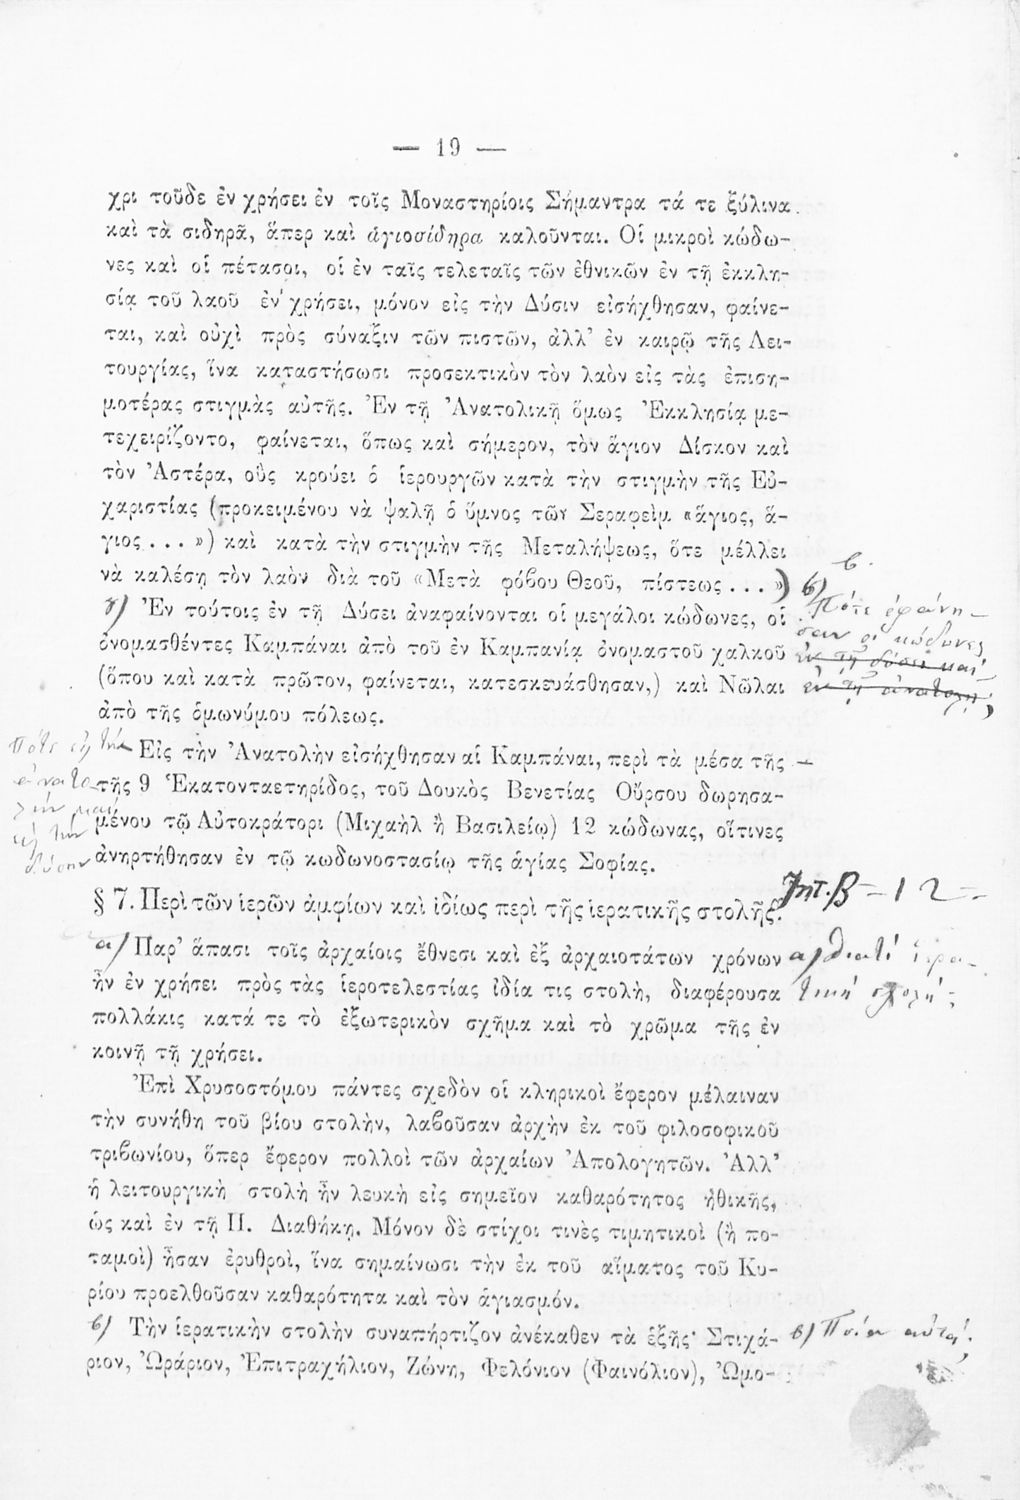 — 19 —
χρι τοῦδε ἐν χρήσει ἐν τοῖς Μοναστηρίοις Σήμαντρα τά τε ξύλινα
καὶ τὰ σιδηρᾶ, ἅπερ καὶ ἁγιοσίδηρα καλοῦνται. Οἱ μικροὶ κώδω-
νες καὶ οἱ πέτασοι, οἱ ἐν ταῖς τελεταῖς τῶν ἐθνικῶν ἐν τῇ ἐκκλη-
σίᾳ τοῦ λαοῦ ἐν χρήσει, μόνον εἰς τὴν Δύσιν εἰσήχθησαν, φαίνε-
ται, καὶ οὐχὶ πρὸς σύναξιν τῶν πιστῶν, ἀλλ' ἐν καιρῷ τῆς Λει-
τουργίας, ἵνα καταστήσωσι προσεκτικὸν τὸν λαὸν εἰς τὰς ἐπιση-
μοτέρας στιγμὰς αὐτῆς. Ἐν τῇ Ἀνατολικῇ ὅμως Ἐκκλησίᾳ με-
τεχειρίζοντο, φαίνεται, ὅπως καὶ σήμερον, τὸν ἅγιον Δίσκον καὶ
τὸν Ἀστέρα, οὓς κρούει ὁ ἱερουργῶν κατὰ τὴν στιγμὴν τῆς Εὐ-
χαριστίας (προκειμένου νὰ ψαλῇ ὁ ὕμνος τῶν Σεραφεὶμ «ἅγιος, ἅ-
γιος . . . ») καὶ κατὰ τὴν στιγμὴν τῆς Μεταλήψεως, ὅτε μέλλει
νὰ καλέσῃ τὸν λαὸν διὰ τοῦ «Μετὰ φόβου Θεοῦ, πίστεως . . . »)
β)
Πότε ἐφάνη-
σαν οἱ κώδωνες
ἐν τῇ δύσει καὶ
ἐν τῇ ἀνατολῇ;
γ) Ἐν τούτοις ἐν τῇ Δύσει ἀναφαίνονται οἱ μεγάλοι κώδωνες, οἱ
ὀνομασθέντες Καμπάναι ἀπὸ τοῦ ἐν Καμπανίᾳ ὀνομαστοῦ χαλκοῦ
(ὅπου καὶ κατὰ πρῶτον, φαίνεται, κατεσκευάσθησαν,) καὶ Νῶλαι
ἀπὸ τῆς ὁμωνύμου πόλεως.
Πότε εἰς τὴν
ἀνατο-
λὴν καὶ
εἰς τὴν
δύσιν
Εἰς τὴν Ἀνατολὴν εἰσήχθησαν αἱ Καμπάναι, περὶ τὰ μέσα τῆς
τῆς 9 Ἑκατονταετηρίδος, τοῦ Δουκὸς Βενετίας Οὔρσου δωρησα-
μένου τῷ Αὐτοκράτορι (Μιχαὴλ ἢ Βασιλείῳ) 12 κώδωνας, οἵτινες
ἀνηρτήθησαν ἐν τῷ κωδωνοστασίῳ τῆς ἁγίας Σοφίας.
§ 7. Περὶ τῶν ἱερῶν ἀμφίων καὶ ἰδίως περὶ τῆς ἱερατικῆς στολῆς.
Ζητ. β = 12 =
α) Παρ' ἅπασι τοῖς ἀρχαίοις ἔθνεσι καὶ ἐξ ἀρχαιοτάτων χρόνων
ἦν ἐν χρήσει πρὸς τὰς ἱεροτελεστίας ἰδία τις στολή, διαφέρουσα
πολλάκις κατά τε τὸ ἐξωτερικὸν σχῆμα καὶ τὸ χρῶμα τῆς ἐν
κοινῇ τῇ χρήσει.
α) διατί ἱερα-
τική στολή;
Ἐπὶ Χρυσοστόμου πάντες σχεδὸν οἱ κληρικοὶ ἔφερον μέλαιναν
τὴν συνήθη τοῦ βίου στολὴν, λαβοῦσαν ἀρχὴν ἐκ τοῦ φιλοσοφικοῦ
τριβωνίου, ὅπερ ἔφερον πολλοὶ τῶν ἀρχαίων Ἀπολογητῶν. Ἀλλ'
ἡ λειτουργικὴ στολὴ ἦν λευκὴ εἰς σημεῖον καθαρότητος ἠθικῆς,
ὡς καὶ ἐν τῇ Π. Διαθήκῃ. Μόνον δὲ στίχοι τινὲς τιμητικοὶ (ἢ πο-
ταμοὶ) ἦσαν ἐρυθροὶ, ἵνα σημαίνωσι τὴν ἐκ τοῦ αἵματος τοῦ Κυ-
ρίου προελθοῦσαν καθαρότητα καὶ τὸν ἁγιασμόν.
β) Τὴν ἱερατικὴν στολὴν συναπήρτιζον ἀνέκαθεν τὰ ἑξῆς· Στιχά-
ριον, Ὠράριον, Ἐπιτραχήλιον, Ζώνη, Φελόνιον (Φαινόλιον), Ὠμο-
β) Ποῖα αὐτά;